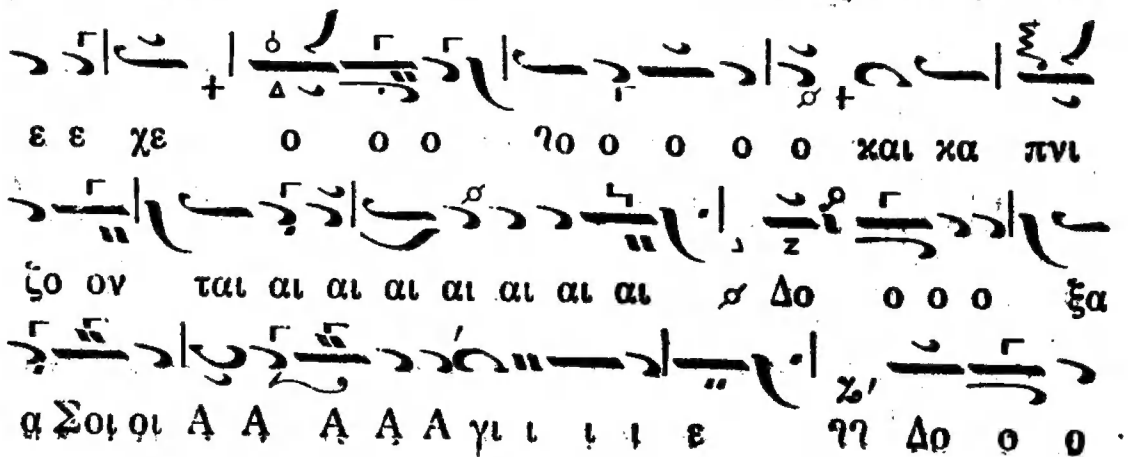 ε ε χε ο ο ο λο ο ο ο ο και κα πνι
ζο ον ται αι αι αι αι αι αι αι Δο ο ο ο ξα
α Σοι οι Α Α Α Α Α γι ι ι ι ε Δο ο ο